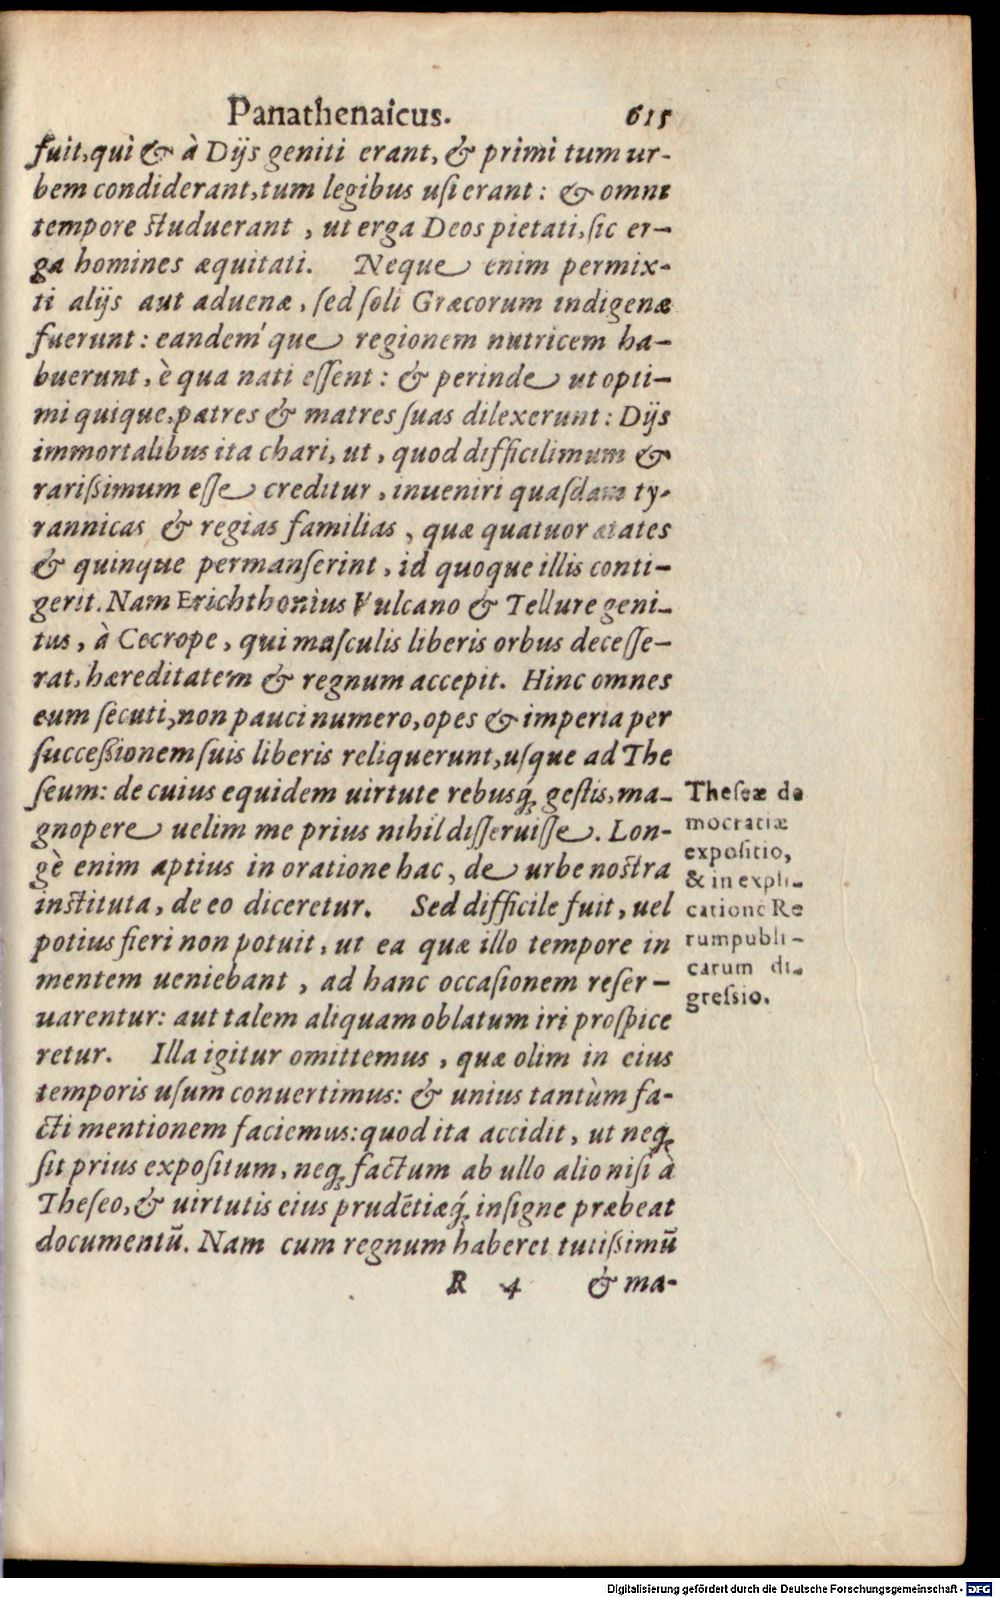 Panathenaicus. 615
fuit, qui & à Dijs geniti erant, & primi tum ur-
bem condiderant, tum legibus usi erant: & omni
tempore studuerant, ut erga Deos pietati, sic er-
ga homines æquitati. Neque enim permix-
ti alijs aut aduenæ, sed soli Græcorum indigenæ
fuerunt: eandem'que regionem nutricem ha-
buerunt, è qua nati essent: & perinde ut opti-
mi quique, patres & matres suas dilexerunt: Dijs
immortalibus ita chari, ut, quod difficilimum &
rarißimum esse creditur, inueniri quasdam ty-
rannicas & regias familias, quæ quatuor ætates
& quinque permanserint, id quoque illis conti-
gerit. Nam Erichthonius Vulcano & Tellure geni-
tus, à Cecrope, qui masculis liberis orbus decesse-
rat, hæreditatem & regnum accepit. Hinc omnes
eum secuti, non pauci numero, opes & imperia per
succeßionem suis liberis reliquerunt, usque ad The
seum: de cuius equidem uirtute rebusq́; gestis, ma-
gnopere uelim me prius nihil disseruisse. Lon-
gè enim aptius in oratione hac, de urbe nostra
instituta, de eo diceretur. Sed difficile fuit, uel
potius fieri non potuit, ut ea quæ illo tempore in
mentem ueniebant, ad hanc occasionem reser-
uarentur: aut talem aliquam oblatum iri prospice
retur. Illa igitur omittemus, quæ olim in eius
temporis usum conuertimus: & unius tantùm fa-
cti mentionem faciemus: quod ita accidit, ut neq;
sit prius expositum, neq; factum ab ullo alio nisi à
Theseo, & uirtutis eius prudẽtiæq́; insigne præbeat
documentũ. Nam cum regnum haberet tutißimũ
R 4 & ma-
Theseæ de
mocratiæ
expositio,
& in expli-
catione Re
rumpubli-
carum di-
gressio.
Digitalisierung gefördert durch die Deutsche Forschungsgemeinschaft - DFG